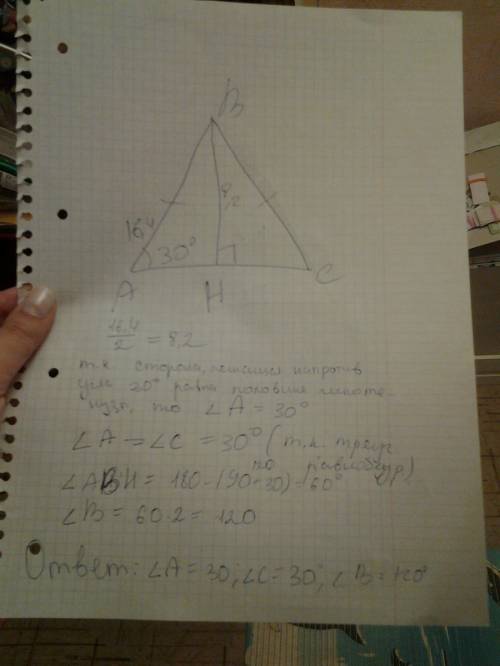 B
16,4
8,2
30°
A
H
C
16,4 / 2 = 8,2
т.к. сторона, лежащая напротив
угла 30° равна половине гипоте-
нузы, то ∠A = 30°
∠A = ∠C = 30° (т.к. треуг.
равнобедр)
120
∠ABH = 180-(90+30)=60°
∠B = 60·2 = 120
Ответ: ∠A = 30; ∠C = 30; ∠B = 120°